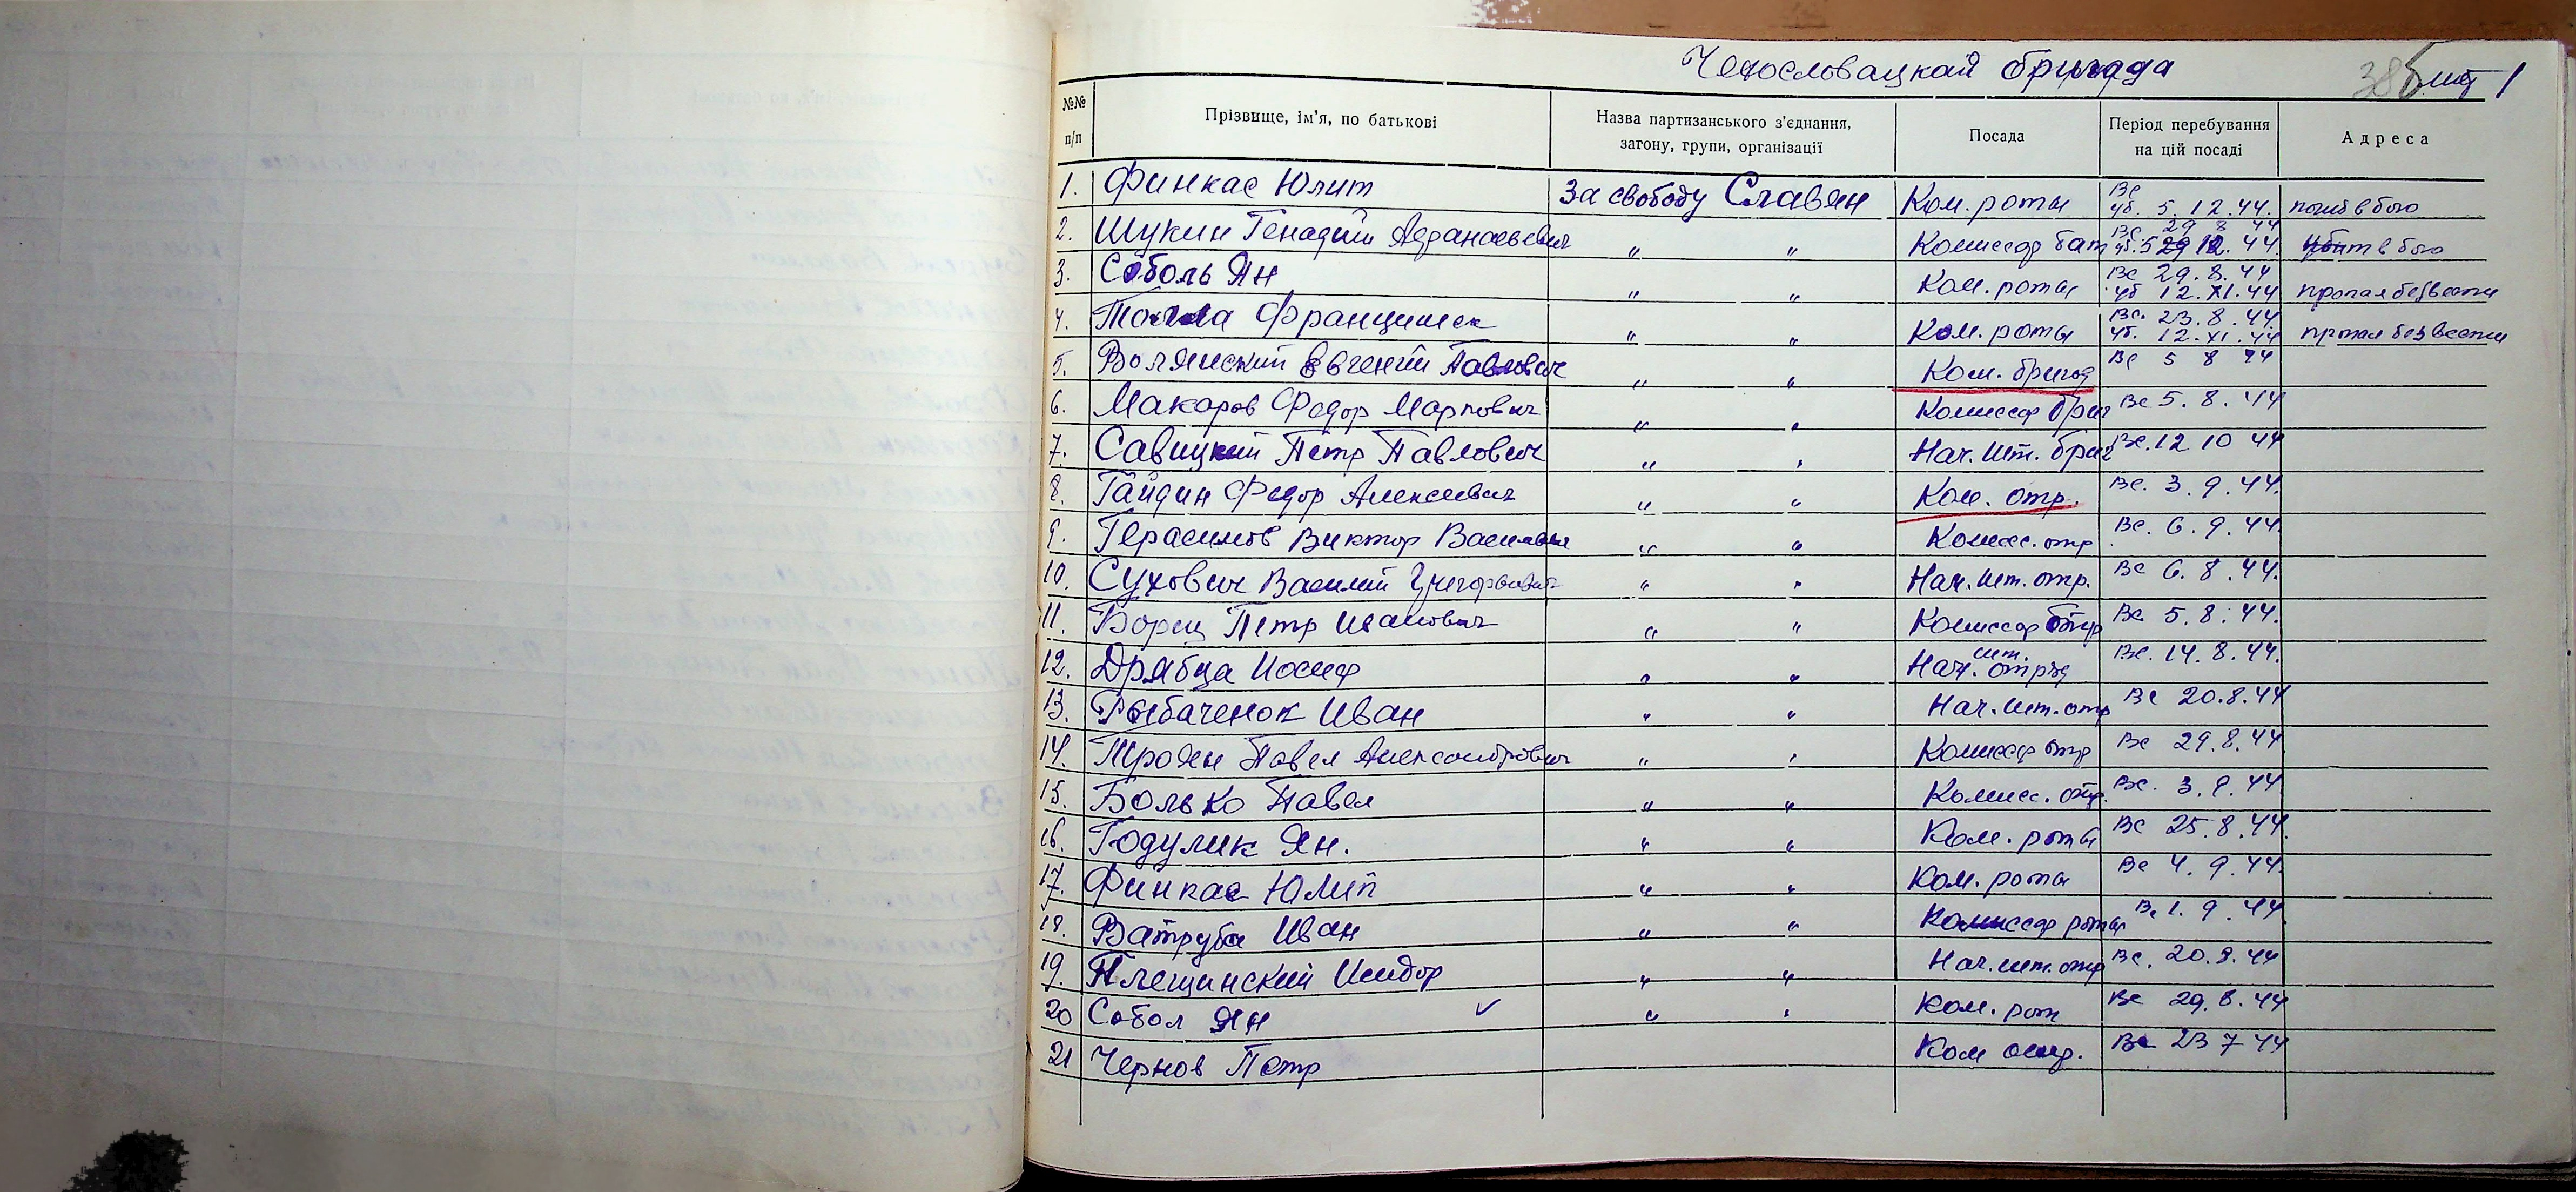 Чехословацкая бригада
лит 1
№№ п/п Прізвище, ім'я, по батькові Назва партизанського з'єднання, загону, групи, організації Посада Період перебування на цій посаді Адреса
1. Финкас Юлит За свободу Славян Ком. роты Вс уб. 5.12.44. погиб в бою
2. Шукин Генадий Афанасьевич " " Комиссар бат Вс 29 8 44 уб. 5 12. 44 убит в бою
3. Соболь Ян " " Ком. роты Вс 29.8.44 уб 12.XI.44 пропал без вести
4. Францишек " " Ком. роты Вс. 23.8.44. уб. 12.XI.44 пропал без вести
5. Волянский Евгений Павлович " " Ком. бригад Вс 5 8 44
6. Макаров Федор Марпович " " Комиссар бриг Вс 5.8.44
7. Савицкий Петр Павлович " " Нач. шт. бриг Вс. 12 10 44
8. Гайдин Федор Алексеевич " " Ком. отр. Вс. 3.9.44.
9. Герасимов Виктор Василье " " Комисс. отр Вс. 6.9.44.
10. Сухович Василий Григорьевич " " Нач. шт. отр. Вс 6.8.44.
11. Борец Петр Иванович " " Комиссар отр Вс 5.8.44.
12. Дрябца Иосиф " " Нач. шт. отряд Вс. 14.8.44.
13. Рыбаченок Иван " " Нач. шт. отр Вс 20.8.44
14. Троян Павел Александрович " " Комиссар отр Вс 29.8.44
15. Болько Павел " " Комисс. отр. Вс. 3.9.44
16. Годулик Ян. " " Ком. роты Вс 25.8.44.
17. Финкас Юлип " " Ком. роты Вс 4.9.44.
18. Ватруба Иван " " Комиссар роты Вс 1.9.44
19. Плещинский Исидор " " Нач. шт. отр Вс. 20.8.44
20 Собол Ян ✓ " " Ком. рот Вс 29.8.44
21 Чернов Петр Ком Вс 23 7 44